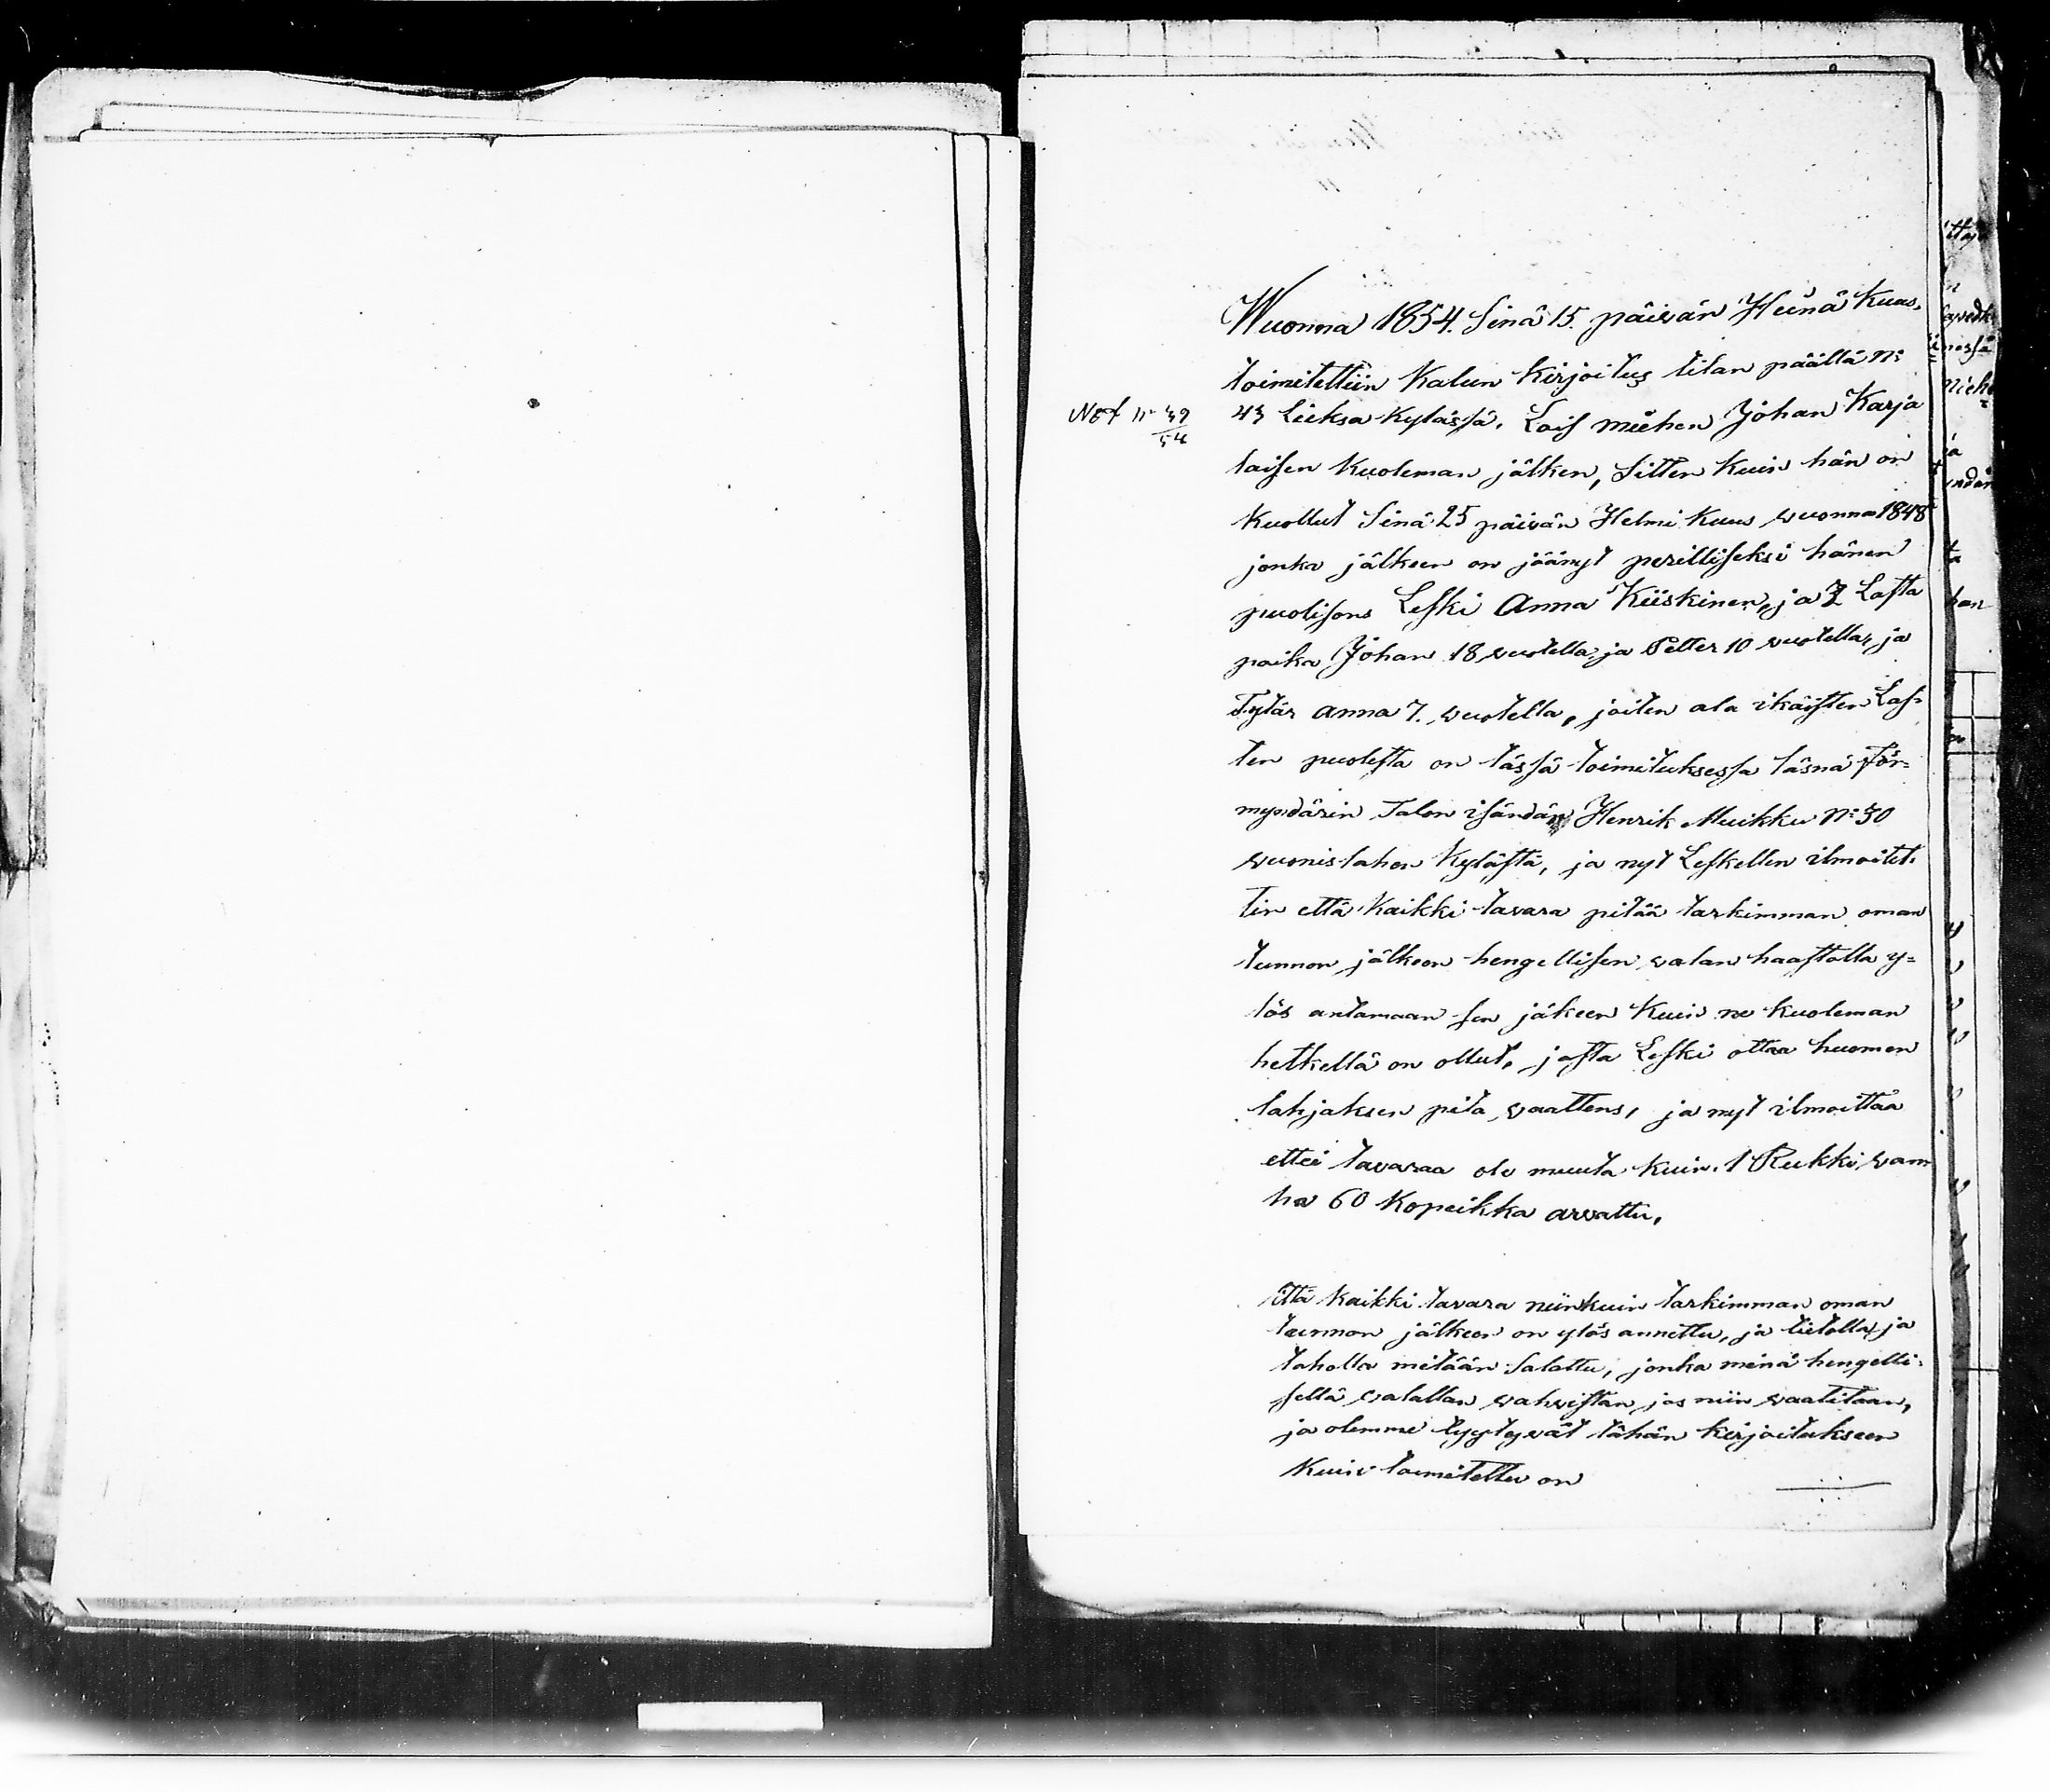 Wuonna 1854. Sinä 15. päivän Heinä Kuus,
toimitettiin Kalun Kirjoitus tilan päällä No
Not No 39/54
43 Lieksa Kylässä. Lois miehen Johan Karja
laisen Kuoleman jälken, Sitten Kuin hän on
Kuollut Sinä 25 päivän Helmi Kuus wuonna 1848
jonka jälkeen on jäänyt perilliseksi hänen
puolisons Leski Anna Kiiskinen, ja 3 Lasta
poika Johan 18 wuotella, ja Petter 10 wuotella, ja
Tytär Anna 7. wuotella, joiten ala ikäisten Las=
ten puolesta on tässä toimituksessa läsnä För=
myndärin Talon isändän Henrik Muikku No 30
wuonislahen Kylästä, ja nyt Leskellen ilmoitet.
tin että Kaikki tavara pitää tarkimman oman
tunnon jälkeen hengellisen valan haastolla y=
lös antamaan sen jäkeen Kuin ne Kuoleman
hetkellä on ollut, josta Leski ottaa huomen
lahjaksen pita vaattens, ja nyt ilmoittaa
ettei tavaraa ole muuta Kuin. 1 Rukki, wan
ha 60 Kopeikka arvattu,
että Kaikki tavara niinkuin tarkimman oman
tunnon jälkeen on ylös annettu, ja tietolla ja
taholla mitään salattu, jonka minä hengelli=
sellä valallan vahvistan jos niin vaatitaan,
ja olemme tyytyvät tähän kirjoitukseen
Kuin toimitettu on